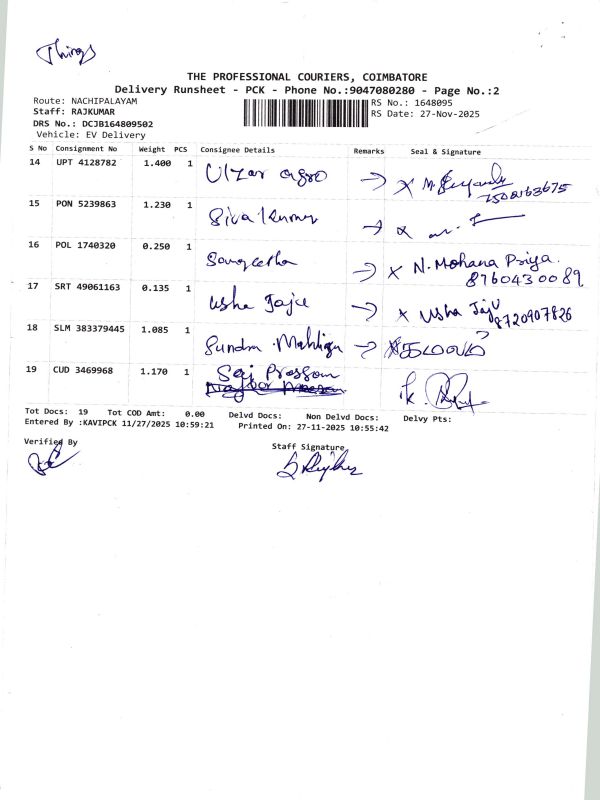 Things
THE PROFESSIONAL COURIERS, COIMBATORE
Delivery Runsheet - PCK - Phone No.:9047080280 - Page No.:2
Route: NACHIPALAYAM
RS No.: 1648095
Staff: RAJKUMAR
RS Date: 27-Nov-2025
DRS No.: DCJB164809502
Vehicle: EV Delivery
S No Consignment No Weight PCS Consignee Details Remarks Seal & Signature
14 UPT 4128782 1.400 1 Ulzar agro → x M.
7502163675
15 PON 5239863 1.230 1 Sivakumar → x
16 POL 1740320 0.250 1 Sangeetha → x N. Mohana Priya.
8760430089
17 SRT 49061163 0.135 1 Usha Jaju → x Usha Jaju
8720907826
18 SLM 383379445 1.085 1 Sundra →
19 CUD 3469968 1.170 1 Sai
Tot Docs: 19 Tot COD Amt: 0.00 Delvd Docs: Non Delvd Docs: Delvy Pts:
Entered By :KAVIPCK 11/27/2025 10:59:21 Printed On: 27-11-2025 10:55:42
Verified By Staff Signature